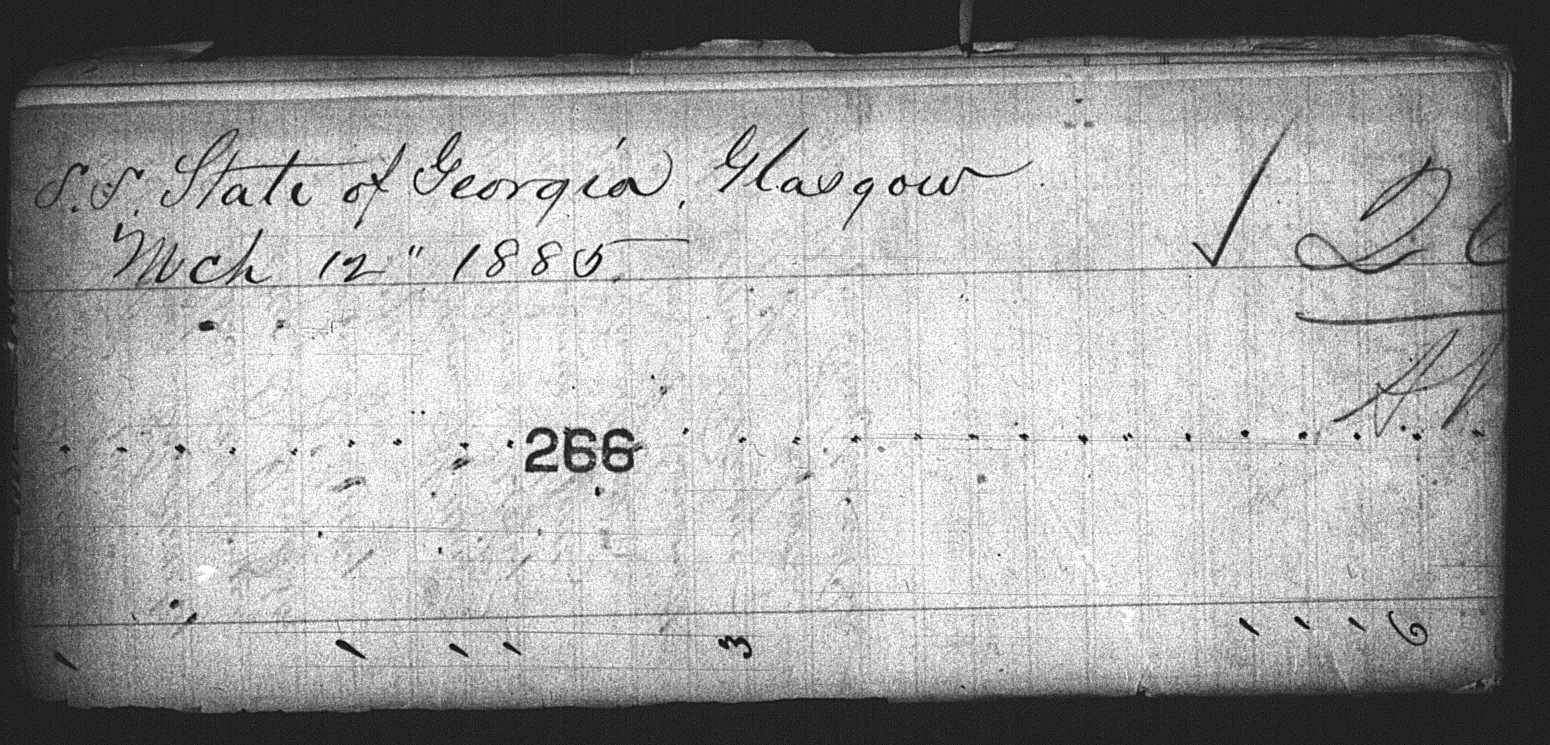 S.S. State of Georgia, Glasgow
Mch 12" 1885
266
3
6